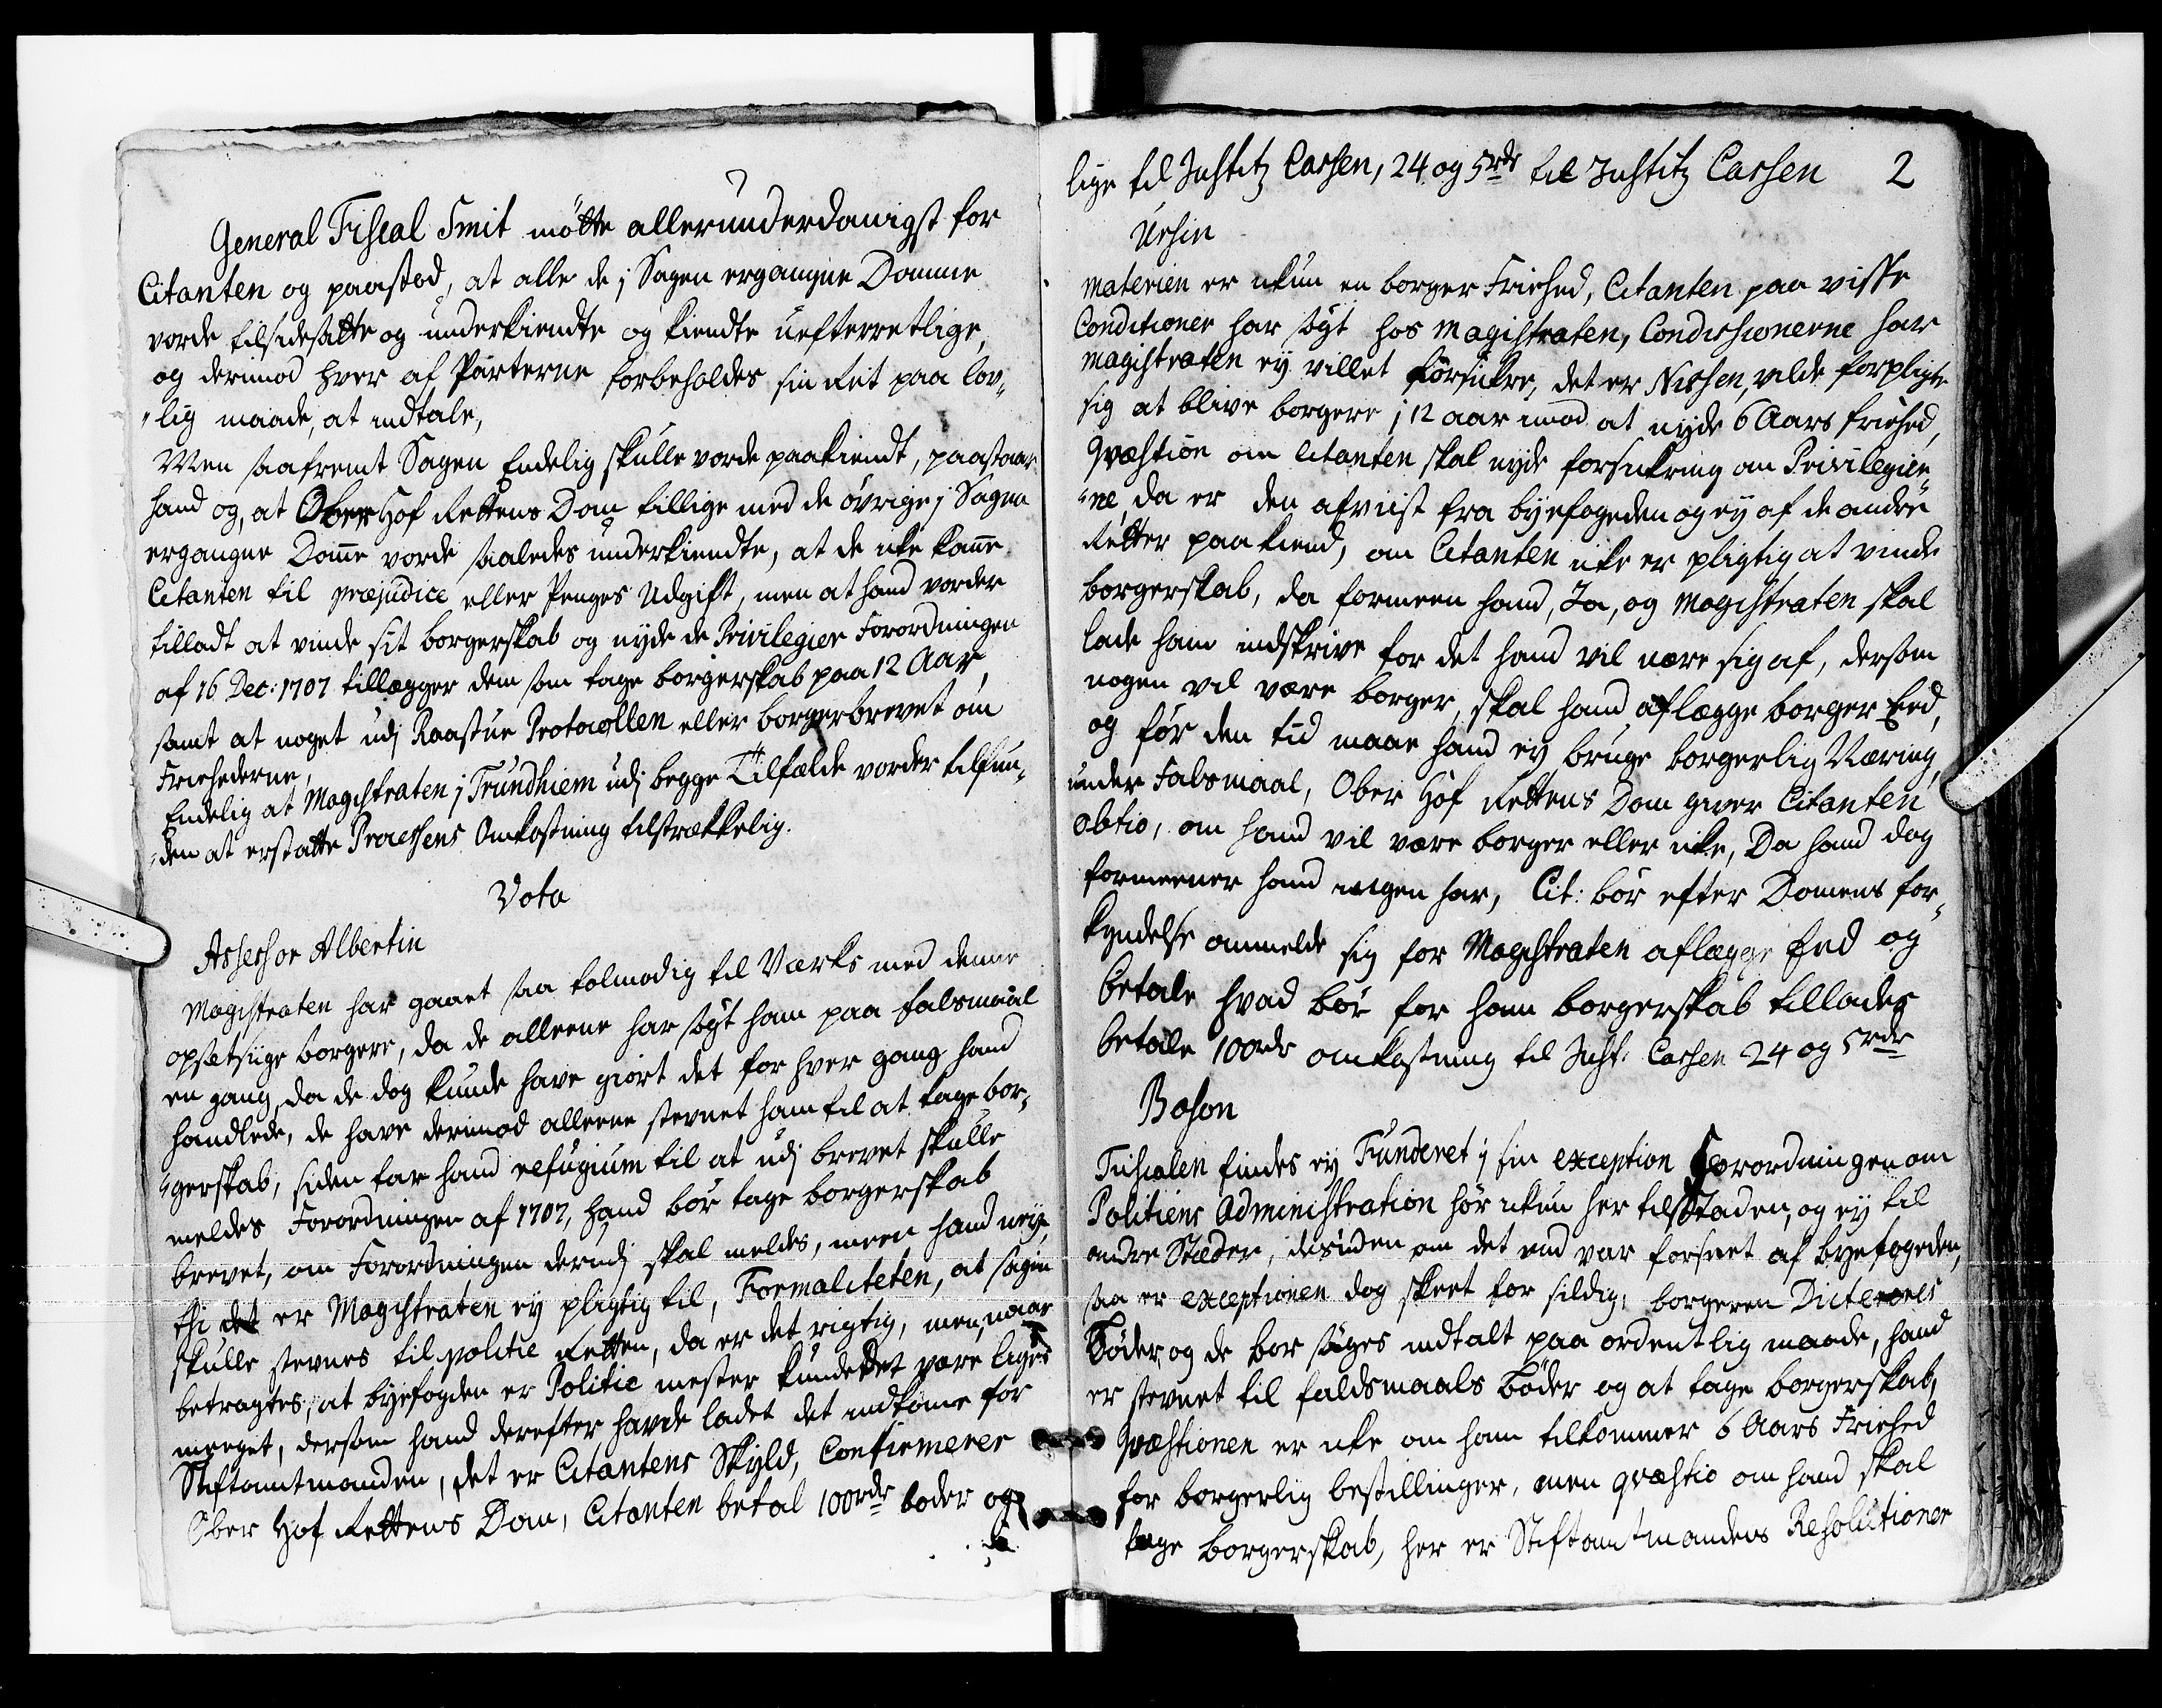 General Fiscal Smit mötte allerunderdanigst for
Citanten og paastod, at alle de j Sagen ergangne Domme
vorde tilsidesatte og underkiendte og kiendte uefterretlige,
og derimod hver af Parterne forbeholdes sin Ret paa lov-
"lig maade, at indtale,
Men saafremt Sagen Endelig skulle vorde paakiendt, paastaar
hand og, at Ober Hof Rettens Dom tillige med de övrige j Sagen
ergangne Domme vorde saaledes underkiendte, at de icke kand
Citanten til præjudice eller Penges Udgift, men at hand vorder
tilladt at vinde sit borgerskab og nyde de Privilegier Forordningen
af 16 Dec: 1707 tillægger dem som tage borgerskab paa 12 Aar,
samt at noget udj Raastue Protocollen eller borgerbrevet om
Friehederne,
Endelig at Magistraten j Trundhiem udj begge Tilfælde vorder tilfun-
"den at erstatte Processens Omkostning tilstrækkelig.
Vota
Assessor Albertin
Magistraten har gaaet saa tolmodig til Værks med denne
opsetsiige borgere, da de alleene har sögt ham paa falsmaal
en gang, da de dog kunde have giort det for hver gang hand
handlede, de have derimod alleene stevnet ham til at tage bor-
"gerskab, siden tar hand refugium til at udj brevet skulle
meldes Forordningen af 1707, hand bör tage borgerskab
brevet, om Forordningen derudj skal meldes, meen hand neye,
thi det er Magistraten ey pligtig til, Formaliteten, at sagen
skulle stevnes til politie Retten, da er det rigtig, men naar
betragtes, at byefogden er Politie mester kunde det være lige
meeget, dersom hand derefter havde ladet det indkome for
Stiftamtmanden, det er Citantens Skyld, Confirmerer
Ober Hof Rettens Dom, Citanten betal 100rdr boder og
lige til Justitz Cassen, 24 og 5rdr til Justitz Cassen 2
Ursin
Materien er ickun en borger Friehed, Citanten paa visse
Conditioner har sögt hos Magistraten, Condissionerne har
Magistraten ey villet forsickre, det er Nissen, vilde forpligte
sig at blive borgere j 12 aar imod at nyde 6 Aars friehed,
Qvæstion om Citanten skal nyde forsickring om Privilegier-
"ne, da er den afviist fra byefogeden og ey af de andre
Retter paakiend, om Citanten icke er pligtig at vinde
borgerskab, da formeen hand, Ja, og Magistraten skal
lade ham indskrive for det hand vil nære sig af, dersom
nogen vil være borger, skal hand aflægge borger Eed,
og för den tid maae hand ey bruge borgerlig Næring,
under Falsmaal, Ober Hof Rettens Dom giver Citanten
obtio, om hand vil være borger eller icke, Da hand dog
formeener hand ingen har, Cit: bör efter Domens for-
kyndelse anmelde sig for Magistraten aflægge Eed og
betale hvad bör for ham borgerskab tillades
betale 100rdr omkostning til Just: Cassen 24 og 5rdr
Boson
Fiscalen findes ey Funderet j sin exception Forordningen om
Politiens Administration hör ickun her til Staden, og ey til
andre Stæder, desuden om det end var forseet af byefogeden,
saa er exceptionen dog skeet for sildig, borgeren Dicteres
Böder, og de bor söges indtalt paa ordentlig maade, hand
er stevnet til faldsmaals böder og at tage borgerskab,
Qvæstionen er icke om ham tilkommer 6 Aars Friehed
for borgerlig bestillinger, men qvæstio om hand skal
tage borgerskab, her er Stiftamtmandens Resolutioner